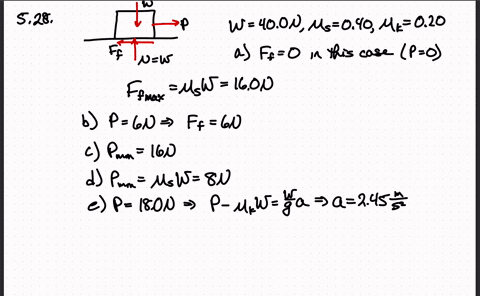 5.28.
W
P
F_f
N=W
W=40.0N, μ_s=0.40, μ_k=0.20
a) F_f=0 in this case (P=0)
F_fmax=μ_sW=16.0N
b) P=6N ⇒ F_f=6N
c) P_min=16N
d) P_min=μ_sW=8N
e) P=18.0N ⇒ P-μ_kW=W/g a ⇒ a=2.45 m/s²